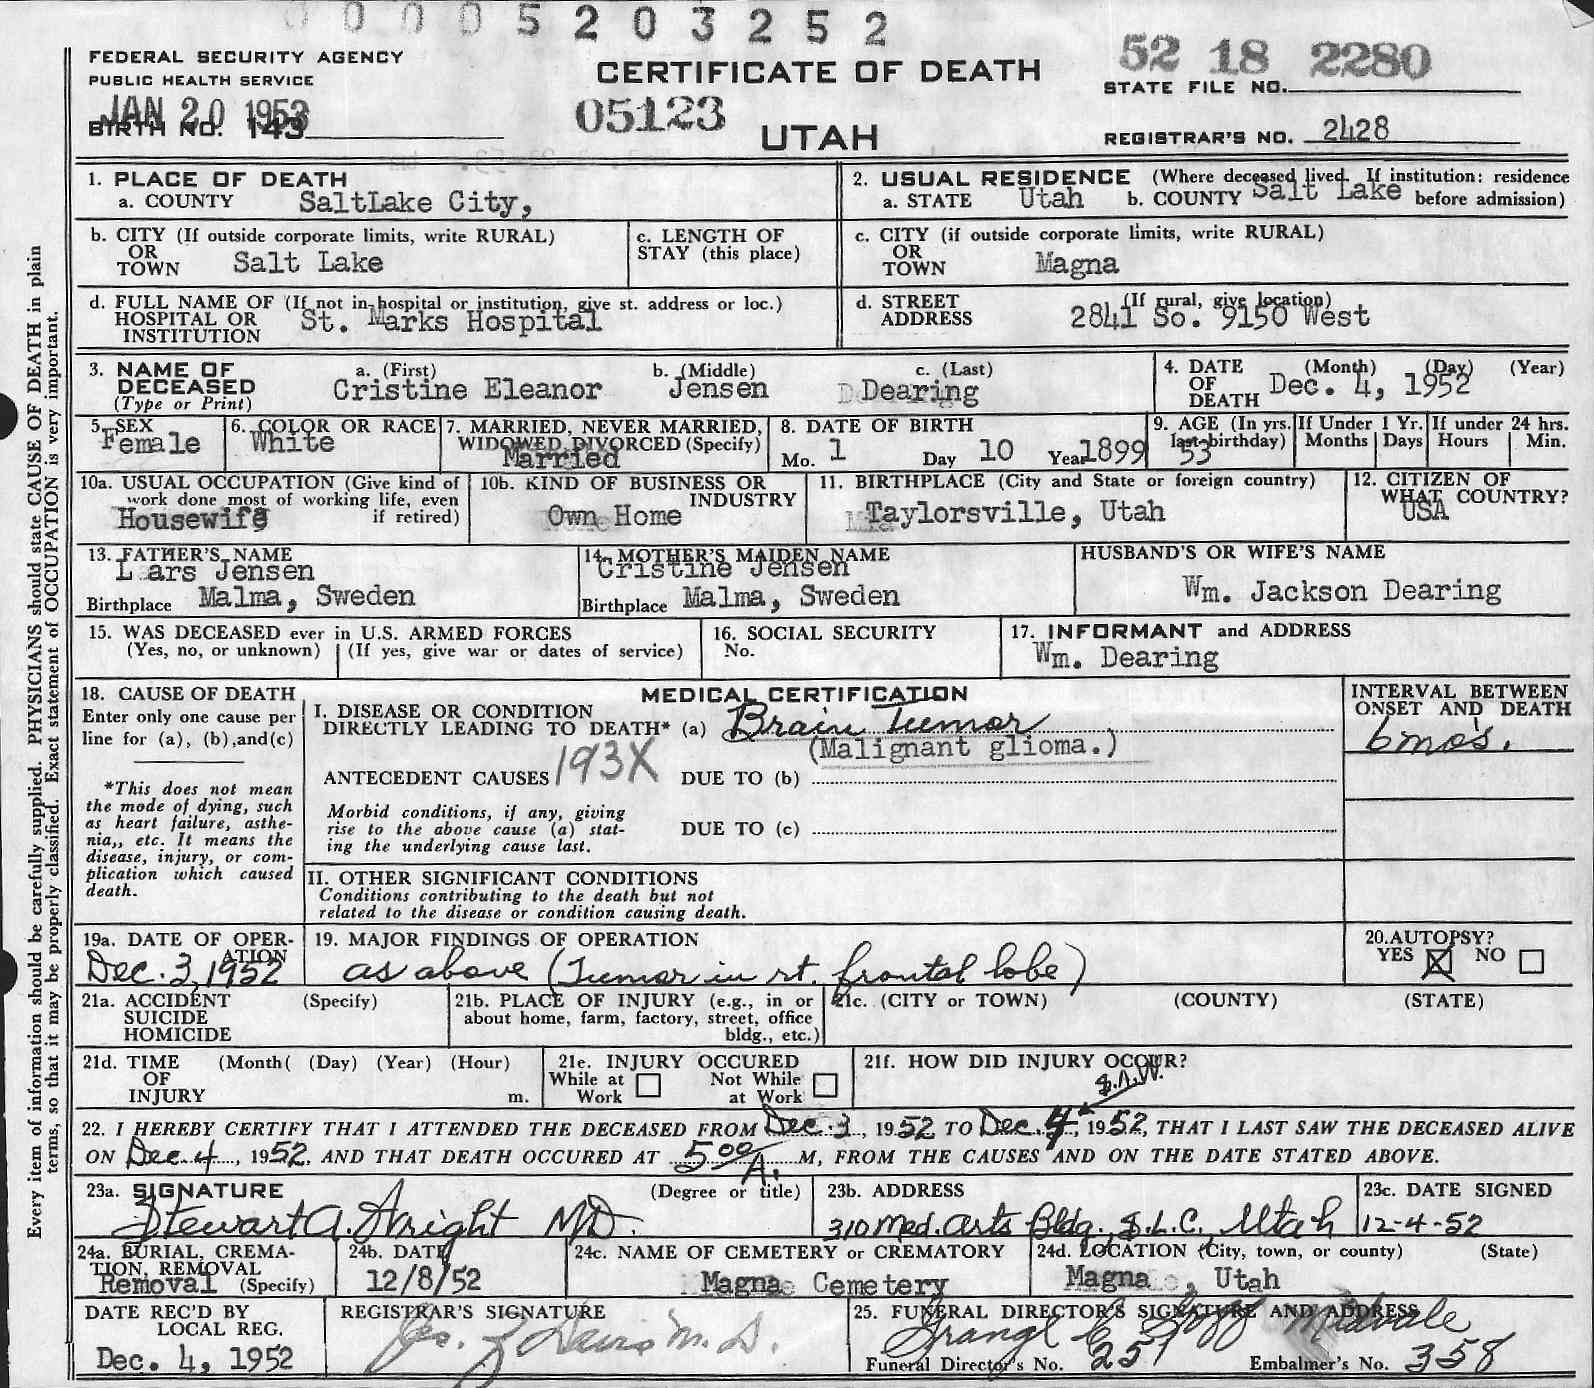 0 0 0 0 5 2 0 3 2 5 2
FEDERAL SECURITY AGENCY
PUBLIC HEALTH SERVICE
JAN 20 1953
BIRTH NO. 143
CERTIFICATE OF DEATH
05123
UTAH
52 18 2280
STATE FILE NO.
REGISTRAR'S NO. 2428
Every item of information should be carefully supplied. PHYSICIANS should state CAUSE OF DEATH in plain
terms, so that it may be properly classified. Exact statement of OCCUPATION is very important.
1. PLACE OF DEATH
a. COUNTY SaltLake City,
2. USUAL RESIDENCE (Where deceased lived. If institution: residence
a. STATE Utah b. COUNTY Salt Lake before admission)
b. CITY (If outside corporate limits, write RURAL)
OR
TOWN Salt Lake
c. LENGTH OF
STAY (this place)
c. CITY (if outside corporate limits, write RURAL)
OR
TOWN Magna
d. FULL NAME OF (If not in hospital or institution, give st. address or loc.)
HOSPITAL OR St. Marks Hospital
INSTITUTION
d. STREET (If rural, give location)
ADDRESS 2841 So. 9150 West
3. NAME OF DECEASED
(Type or Print)
a. (First) b. (Middle) c. (Last)
Cristine Eleanor Jensen Dearing
4. DATE OF DEATH (Month) (Day) (Year)
Dec. 4, 1952
5. SEX
Female
6. COLOR OR RACE
White
7. MARRIED, NEVER MARRIED,
WIDOWED, DIVORCED (Specify)
Married
8. DATE OF BIRTH
Mo. 1 Day 10 Year 1899
9. AGE (In yrs. last birthday)
53
If Under 1 Yr.
Months Days
If under 24 hrs.
Hours Min.
10a. USUAL OCCUPATION (Give kind of
work done most of working life, even
if retired)
Housewife
10b. KIND OF BUSINESS OR
INDUSTRY
Own Home
11. BIRTHPLACE (City and State or foreign country)
Taylorsville, Utah
12. CITIZEN OF
WHAT COUNTRY?
USA
13. FATHER'S NAME
Lars Jensen
Birthplace Malma, Sweden
14. MOTHER'S MAIDEN NAME
Cristine Jensen
Birthplace Malma, Sweden
HUSBAND'S OR WIFE'S NAME
Wm. Jackson Dearing
15. WAS DECEASED ever in U.S. ARMED FORCES
(Yes, no, or unknown) (If yes, give war or dates of service)
16. SOCIAL SECURITY
No.
17. INFORMANT and ADDRESS
Wm. Dearing
18. CAUSE OF DEATH
Enter only one cause per
line for (a), (b),and(c)
*This does not mean
the mode of dying, such
as heart failure, asthe-
nia,, etc. It means the
disease, injury, or com-
plication which caused
death.
MEDICAL CERTIFICATION
I. DISEASE OR CONDITION
DIRECTLY LEADING TO DEATH* (a) Brain Tumor
(Malignant glioma.)
ANTECEDENT CAUSES 193X DUE TO (b)
Morbid conditions, if any, giving
rise to the above cause (a) stat-
ing the underlying cause last.
DUE TO (c)
II. OTHER SIGNIFICANT CONDITIONS
Conditions contributing to the death but not
related to the disease or condition causing death.
INTERVAL BETWEEN
ONSET AND DEATH
6 mo's.
19a. DATE OF OPER-
ATION
Dec. 3, 1952
19. MAJOR FINDINGS OF OPERATION
as above (Tumor in rt. frontal lobe)
20.AUTOPSY?
YES X NO
21a. ACCIDENT (Specify)
SUICIDE
HOMICIDE
21b. PLACE OF INJURY (e.g., in or
about home, farm, factory, street, office
bldg., etc.)
21c. (CITY or TOWN) (COUNTY) (STATE)
21d. TIME (Month( (Day) (Year) (Hour)
OF
INJURY m.
21e. INJURY OCCURED
While at Work Not While at Work
21f. HOW DID INJURY OCCUR?
S.A.W.
22. I HEREBY CERTIFY THAT I ATTENDED THE DECEASED FROM Dec. 3, 1952 TO Dec. 4, 1952, THAT I LAST SAW THE DECEASED ALIVE
ON Dec 4, 1952, AND THAT DEATH OCCURED AT 5 00 A. M, FROM THE CAUSES AND ON THE DATE STATED ABOVE.
23a. SIGNATURE (Degree or title)
Stewart A. Wright MD.
23b. ADDRESS
310 Med. Arts Bldg., S.L.C., Utah
23c. DATE SIGNED
12-4-52
24a. BURIAL, CREMA-
TION, REMOVAL
Removal (Specify)
24b. DATE
12/8/52
24c. NAME OF CEMETERY or CREMATORY
Magna Cemetery
24d. LOCATION (City, town, or county) (State)
Magna, Utah
DATE REC'D BY
LOCAL REG.
Dec. 4, 1952
REGISTRAR'S SIGNATURE
25. FUNERAL DIRECTOR'S SIGNATURE AND ADDRESS
Midvale
Funeral Director's No. 251 Embalmer's No. 358